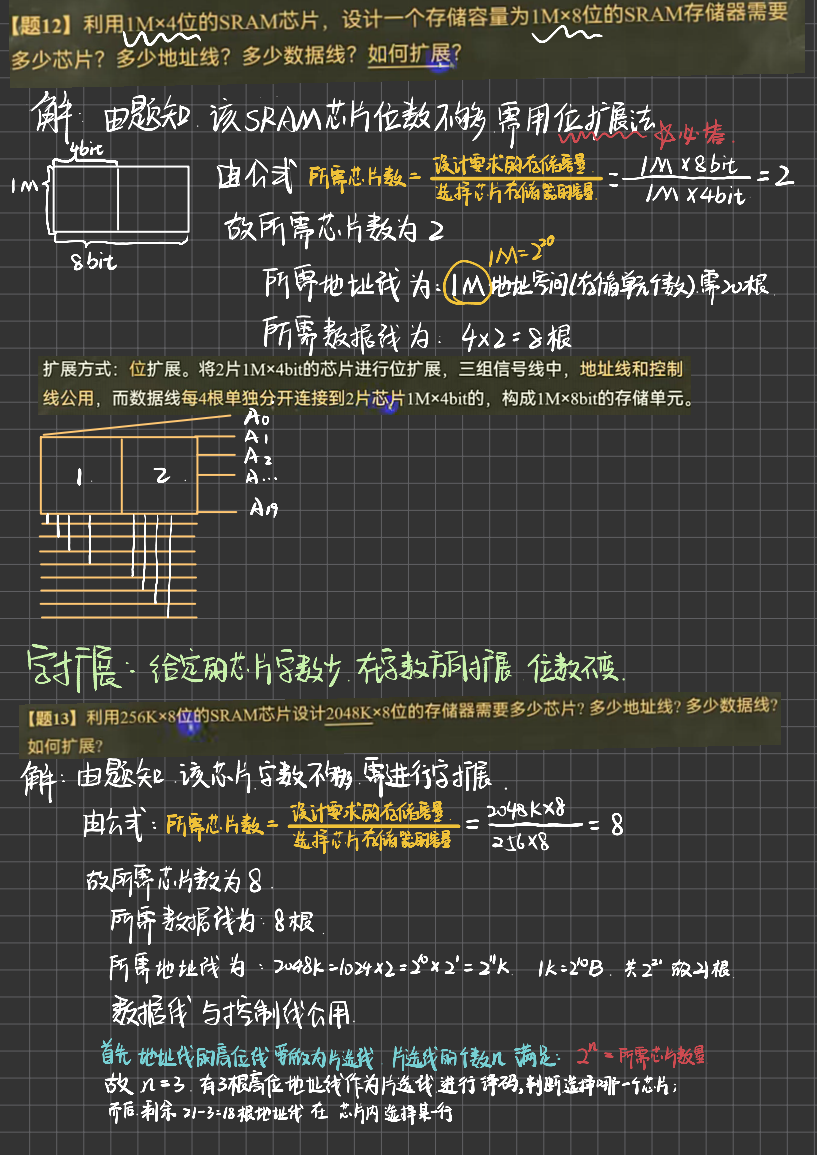 【题12】利用1M×4位的SRAM芯片，设计一个存储容量为1M×8位的SRAM存储器需要
多少芯片？多少地址线？多少数据线？如何扩展？
解：由题知 该SRAM芯片位数不够 需用位扩展法
必必者
4bit
1M
8bit
由公式 所需芯片数 = 设计要求的存储容量 / 选择芯片存储器的容量 = 1M×8bit / 1M×4bit = 2
故所需芯片数为2
1M=2^20
所需地址线为：1M地址空间(存储单元个数)需20根
所需数据线为：4×2=8根
扩展方式：位扩展。将2片1M×4bit的芯片进行位扩展，三组信号线中，地址线和控制
线公用，而数据线每4根单独分开连接到2片芯片1M×4bit的，构成1M×8bit的存储单元。
A0
A1
A2
A...
A19
1 2
字扩展：给定的芯片字数少 在字数方向扩展 位数不变.
【题13】利用256K×8位的SRAM芯片设计2048K×8位的存储器需要多少芯片? 多少地址线? 多少数据线?
如何扩展?
解：由题知 该芯片字数不够 需进行字扩展.
由公式：所需芯片数 = 设计要求的存储容量 / 选择芯片存储器的容量 = 2048K×8 / 256×8 = 8
故所需芯片数为8.
所需数据线为：8根
所需地址线为：2048K=1024×2=2^10×2^1=2^11K. 1K=2^10B. 共2^21 故21根
数据线与控制线公用.
首先 地址线的高位线要做为片选线 片选线的个数n 满足：2^n=所需芯片数量
故 n=3. 有3根高位地址线作为片选线进行译码,判断选择哪一个芯片；
而后 剩余 21-3=18根地址线 在 芯片内选择某一行